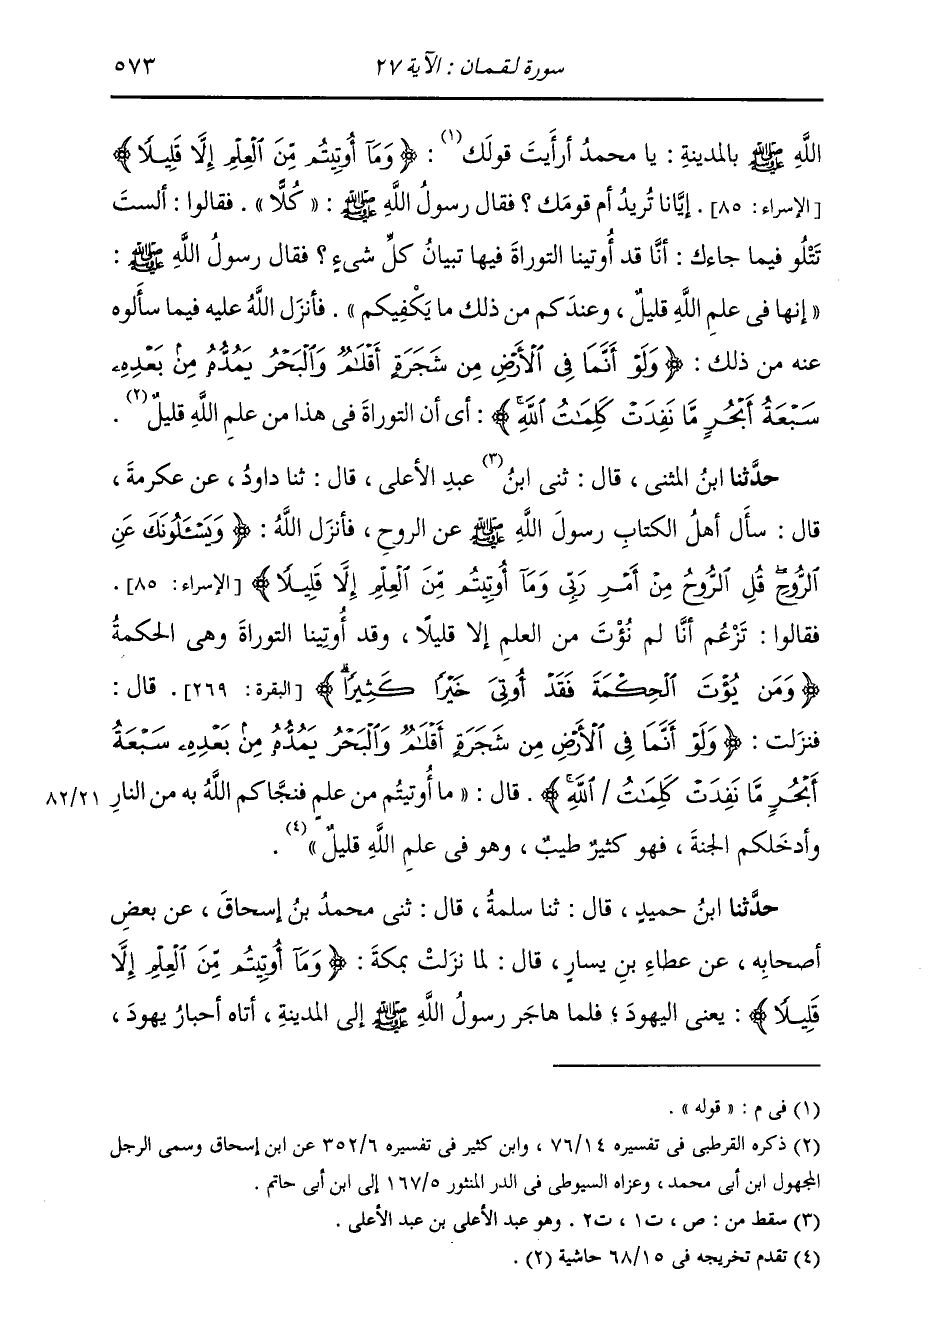 سورة لقمان : الآية ٢٧ ٥٧٣
اللَّهِ ﷺ بالمدينةِ : يا محمدُ أرأَيتَ قولَك(١) : ﴿ وَمَآ أُوتِيتُم مِّنَ ٱلْعِلْمِ إِلَّا قَلِيلًا ﴾
[الإسراء: ٨٥] . إيَّانا تُريدُ أم قومَك ؟ فقال رسولُ اللَّهِ ﷺ : « كُلًّا » . فقالوا : ألستَ
تَتْلُو فيما جاءك : أنَّا قد أُوتينا التوراةَ فيها تبيانُ كلِّ شىءٍ ؟ فقال رسولُ اللَّهِ ﷺ :
« إنها فى علمِ اللَّهِ قليلٌ ، وعندَكم من ذلك ما يَكْفِيكم » . فأنزَل اللَّهُ عليه فيما سأَلوه
عنه من ذلك : ﴿ وَلَوْ أَنَّمَا فِى ٱلْأَرْضِ مِن شَجَرَةٍ أَقْلَٰمٌ وَٱلْبَحْرُ يَمُدُّهُۥ مِنۢ بَعْدِهِۦ
سَبْعَةُ أَبْحُرٍ مَّا نَفِدَتْ كَلِمَٰتُ ٱللَّهِۚ ﴾ : أى أن التوراةَ فى هذا من علمِ اللَّهِ قليلٌ(٢) .
حدَّثنا ابنُ المثنى ، قال : ثنى ابنُ(٣) عبدِ الأعلى ، قال : ثنا داودُ ، عن عكرمةَ ،
قال : سأَل أهلُ الكتابِ رسولَ اللَّهِ ﷺ عن الروحِ ، فأنزَل اللَّهُ : ﴿ وَيَسْـَٔلُونَكَ عَنِ
ٱلرُّوحِۖ قُلِ ٱلرُّوحُ مِنْ أَمْرِ رَبِّى وَمَآ أُوتِيتُم مِّنَ ٱلْعِلْمِ إِلَّا قَلِيلًا ﴾ [الإسراء: ٨٥] .
فقالوا : تَزْعُم أنَّا لم نُؤْتَ من العلمِ إلا قليلًا ، وقد أُوتِينا التوراةَ وهى الحكمةُ
﴿ وَمَن يُؤْتَ ٱلْحِكْمَةَ فَقَدْ أُوتِىَ خَيْرًا كَثِيرًاۗ ﴾ [البقرة: ٢٦٩] . قال :
فنزَلت : ﴿ وَلَوْ أَنَّمَا فِى ٱلْأَرْضِ مِن شَجَرَةٍ أَقْلَٰمٌ وَٱلْبَحْرُ يَمُدُّهُۥ مِنۢ بَعْدِهِۦ سَبْعَةُ
أَبْحُرٍ مَّا نَفِدَتْ كَلِمَٰتُ / ٱللَّهِۚ ﴾ . قال : « ما أُوتيتُم من علمٍ فنجَّاكم اللَّهُ به من النارِ ٨٢/٢١
وأدخَلكم الجنةَ ، فهو كثيرٌ طيبٌ ، وهو فى علمِ اللَّهِ قليلٌ »(٤) .
حدَّثنا ابنُ حميدٍ ، قال : ثنا سلمةُ ، قال : ثنى محمدُ بنُ إسحاقَ ، عن بعضِ
أصحابِه ، عن عطاءِ بنِ يسارٍ ، قال : لما نزَلتْ بمكةَ : ﴿ وَمَآ أُوتِيتُم مِّنَ ٱلْعِلْمِ إِلَّا
قَلِيلًا ﴾ : يعنى اليهودَ ؛ فلما هاجَر رسولُ اللَّهِ ﷺ إلى المدينةِ ، أتاه أحبارُ يهودَ ،
(١) فى م : « قوله » .
(٢) ذكره القرطبى فى تفسيره ٧٦/١٤ ، وابن كثير فى تفسيره ٣٥٢/٦ عن ابن إسحاق وسمى الرجل
المجهول ابن أبى محمد ، وعزاه السيوطى فى الدر المنثور ١٦٧/٥ إلى ابن أبى حاتم .
(٣) سقط من : ص ، ت١ ، ت٢ . وهو عبد الأعلى بن عبد الأعلى .
(٤) تقدم تخريجه فى ٦٨/١٥ حاشية (٢) .